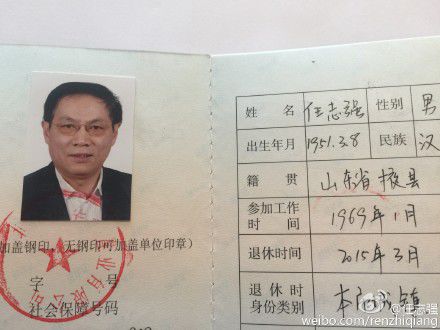 加盖钢印，无钢印可加盖单位印章）
字 号
社会保障号码
姓 名 任志强 性别 男
出生年月 1951.3.8 民族 汉
籍 贯 山东省掖县
参加工作时 间 1969年1月
退休时间 2015年3月
退休时身份类别
@任志强
weibo.com/renzhiqiang